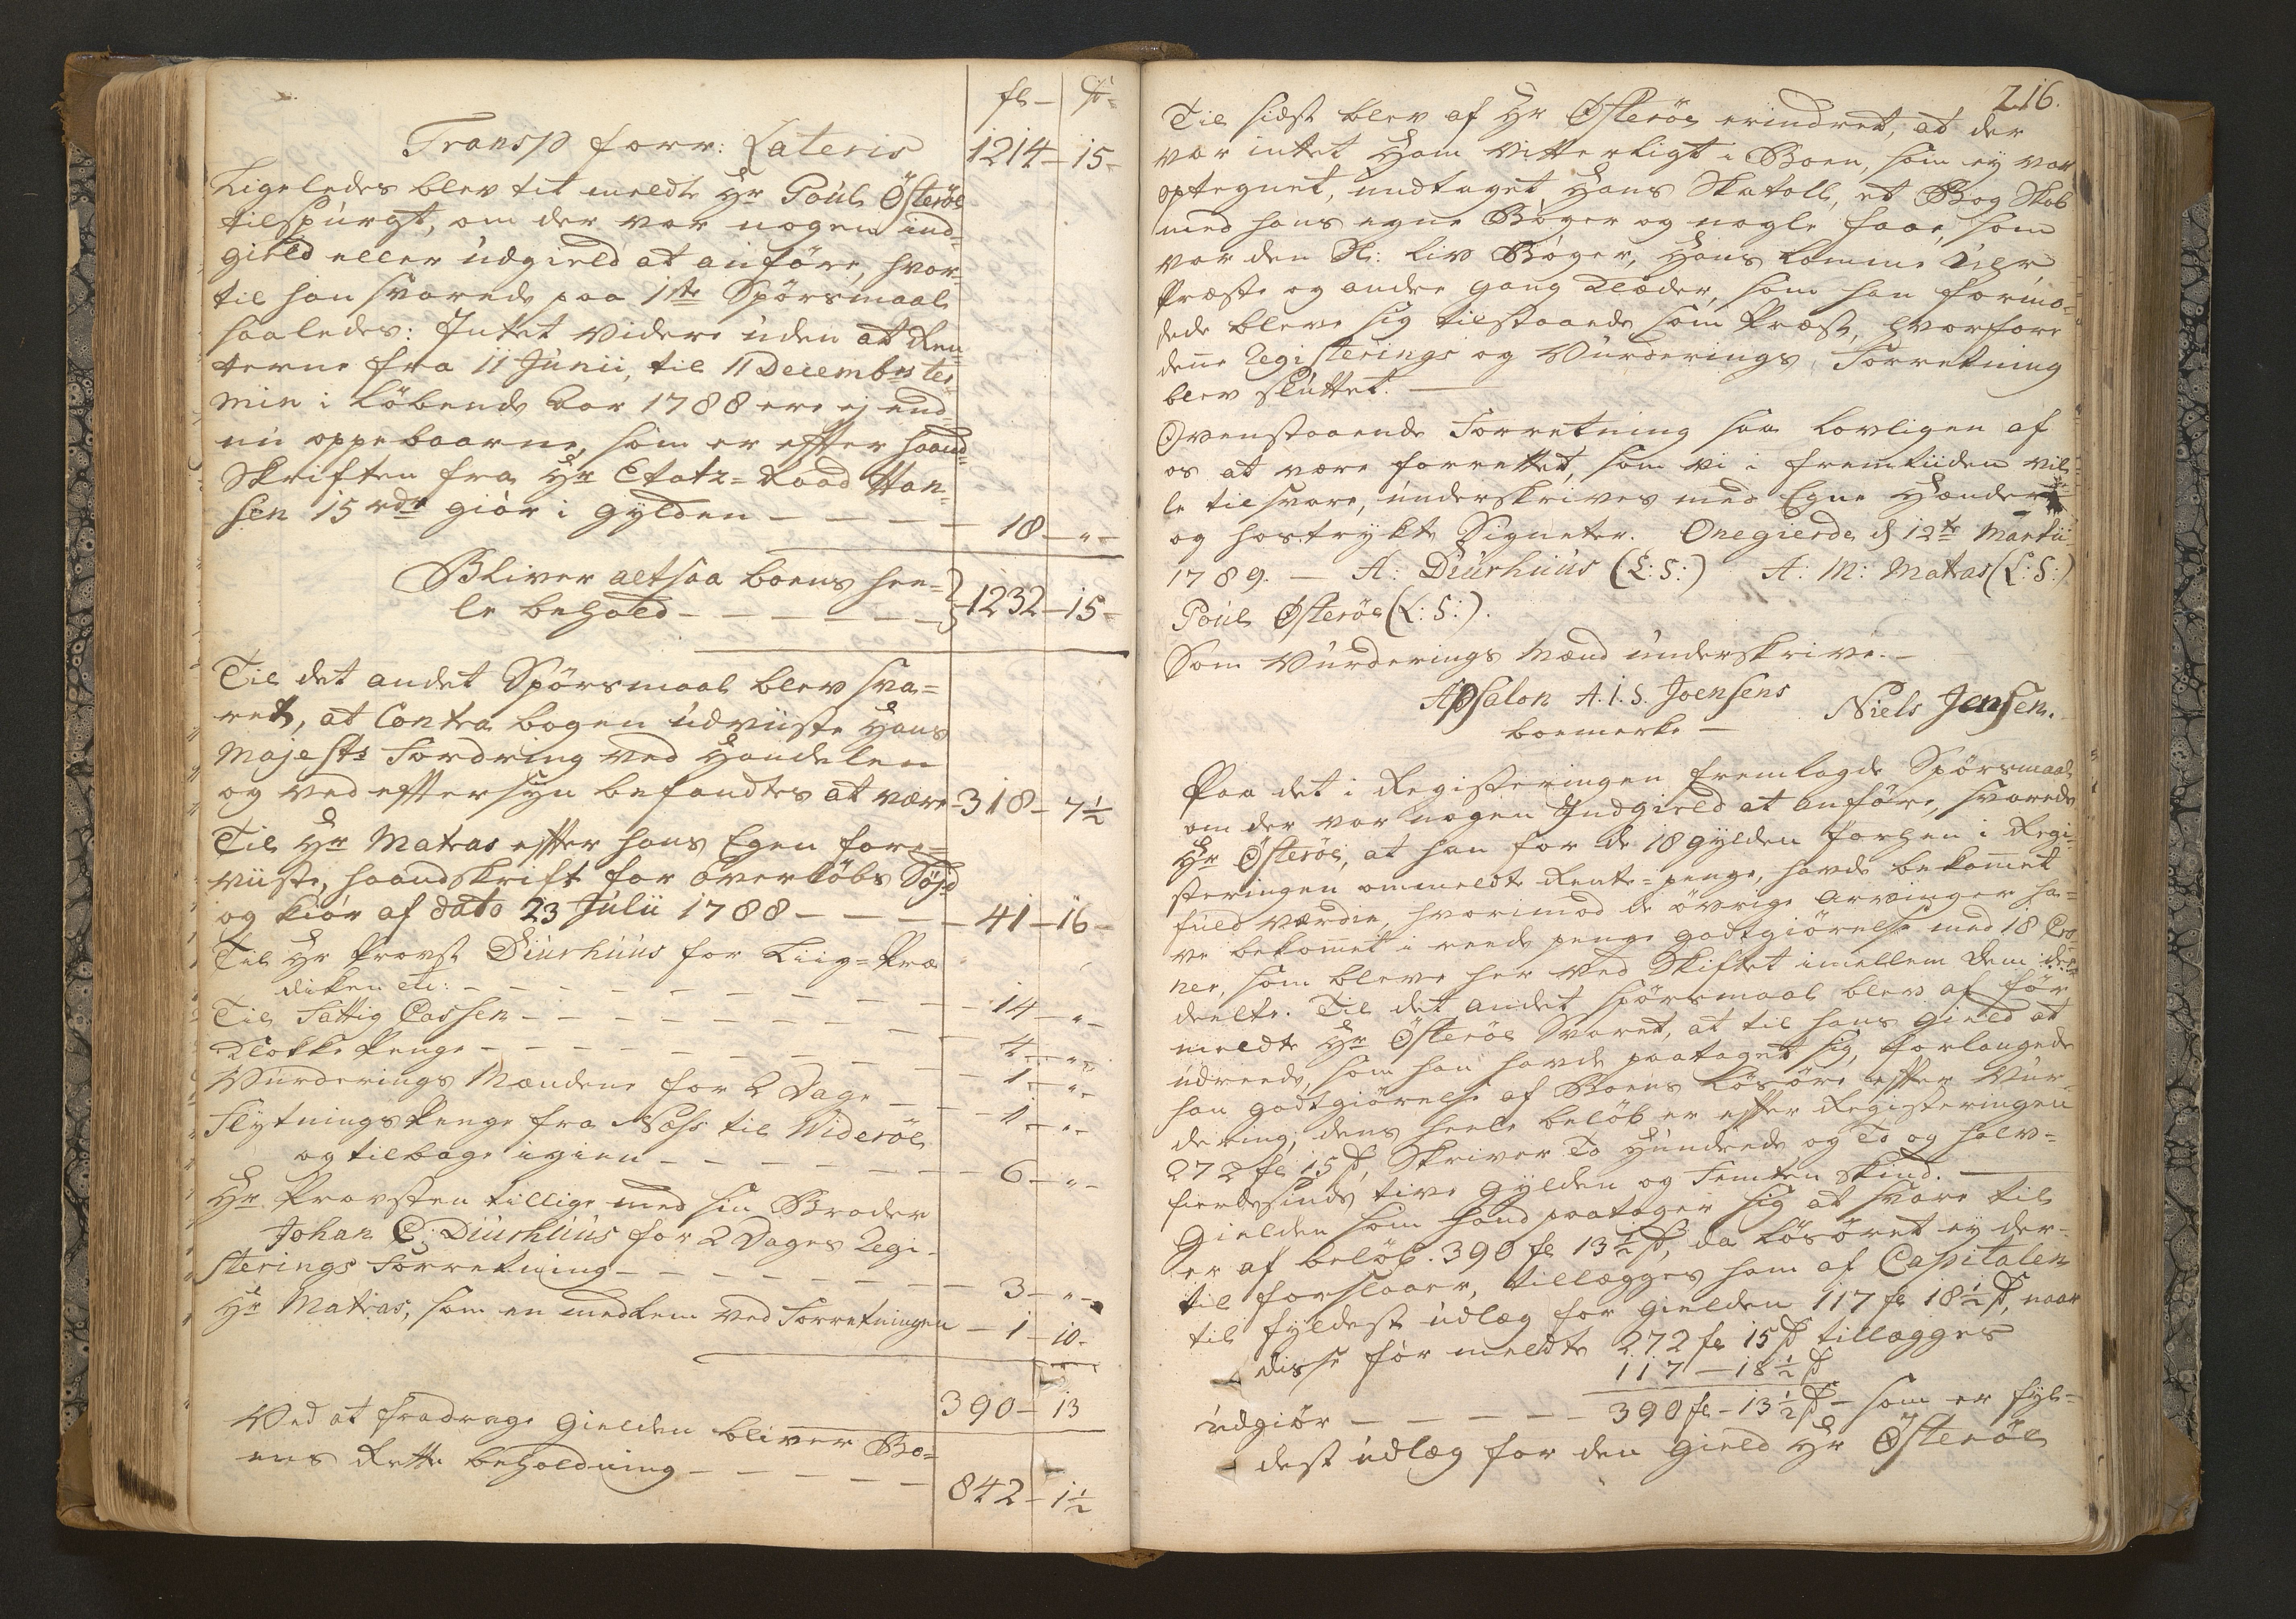 fl – ß –
Transp forr: Lateris 1214 – 15 –
Ligeledes blev tit meldte Hr Poul Østerøe
tilspurgt, om der var nogen ind=
gield eller udgield at anføre, hvor=
til han svarede paa 1ste Spørsmaal
saaledes: Intet videre uden at Ren=
terne fra 11 Junii, til 11 Decembr ter=
min i løbende Aar 1788 ere ej end=
nu oppebaarne, som er efter haand=
Skriften fra Hr Etatz=Raad Han=
sen 15 rdr giør i gylden – – – – 18 – " –
Bliver altsaa boens hee=
le behold – – – – – – 1232 – 15 –
Til det andet Spørsmaal blev sva=
ret, at Contra bogen udviiste Hans
Majests Fordring ved Handelen
og ved eftersyn befandtes at være – 318 – 7½
Til Hr Matras efter hans Egen fore=
viiste, haandskrift for overkøbs Føjd
og kiør af dato 23 Julii 1788 – – – – 41 – 16 –
Til Hr Provst Diurhuus for Liig=Præ
diken etc: – – – – – – – – – 14 – " –
Til Fattig Cassen – – – – – – – – 4 – " –
Klokke Penge – – – – – – – – 1 – " –
Vurderings Mændene for 2 Dage – – – 1 – " –
Flytnings Penge fra Næss til Viderøe
og tilbage igien – – – – – – – 6 – " –
Hr Provsten tillige med sin Broder
Johan C: Diurhuus for 2 Dages Regi=
sterings Forretning – – – – – – – 3 – " –
Hr Matras, som en medlem ved Forretningen – 1 – 10 –
390 – 13
Ved at fradrage Gielden bliver Bo=
ens Rette beholdning – – – – – 842 – 1½
216.
Til sidst blev af Hr Østerøe erindret, at der
var intet Ham vitterligt i Boen, som ey var
optegnet, undtaget Hans Skatoll, et Bog Skab
med hans egne Bøger og nogle faae, som
var den Sl: Liv Bøger, Hans Lomme Uhr,
Præste og andre gang Klæder, som han formo=
dede bleve sig tilstaaede som Præst, hvorfore
denne Registerings og Vurderings Forretning
blev sluttet. –
Ovenstaaende Forretning saa lovligen af
os at være forrettet, som vi i fremtiiden vil=
le tilsvare, underskrives med Egne Hænder
og hostrykte Signeter. Onegierde d 12te Martii
1789. – A: Diurhuus (L:S:) A: M: Matras (L:S:)
Poul Østerøe (L:S:).
Som Vurderings Mænd underskrive. –
Apsalon A.I.S. Joensens Niels Jensen.
boemerke –
Paa det i Registeringen fremlagde Spørsmaal
om der var nogen Indgield at anføre, svarede
Hr Østerøe, at han for de 18 gylden forhen i Regi=
steringen ommeldte Rente=penge, havde bekommet
fuld værdie, hvorimod de øvrige Arvinger ha=
ve bekommet i reede penge godtgiørelse med 18 Cro=
ner, som bleve her ved Skiftet imellem dem de=
deelte. Til det andet spørsmaal blev af før
meldte Hr Østerøe Svaret, at til hans Gield at
udreede, som han havde paataget sig, forlangede
han godtgiørelse af Boens Løsøre efter Vur=
dering, dens heele beløb er efter Registeringen
272 fl 15 ß, Skriver To Hundrede og To og halv=
fierdesinds tive Gylden og Femten Skind. –
Gielden som Hand paatager sig at svare til
er af beløb 390 fl 13½ ß, da Løsøret ey der=
til forslaaer, tillægges ham af Capitalen
til fyldest udlæg for Gielden 117 fl 18½ ß, naar
disse før meldte 272 fl 15 ß tillægges
117 – 18½ ß
udgiør – – – – – 390 fl – 13½ ß – som er fyl=
dest udlæg for den Gield Hr Østerøe